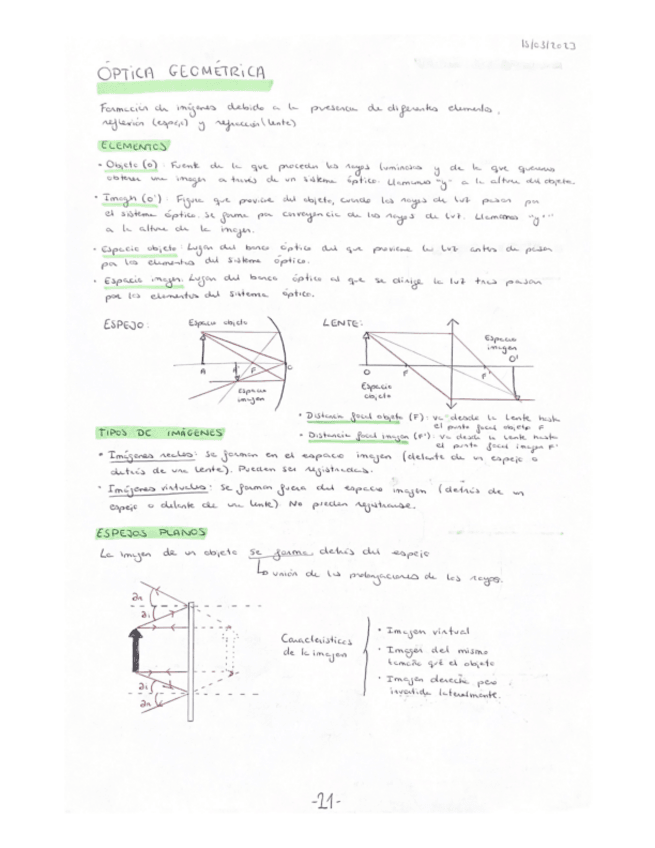 13/03/2023
ÓPTICA GEOMÉTRICA
Formación de imágenes debido a la presencia de diferentes elementos,
reflexión (espejo) y refracción (lente)
ELEMENTOS
· Objeto (o): Fuente de la que proceden los rayos luminosos y de la que queremos
obtener una imagen a través de un sistema óptico. Llamamos "y" a la altura del objeto.
· Imagen (o'): Figura que proviene del objeto, cuando los rayos de luz pasan por
el sistema óptico. Se forma por convergencia de los rayos de luz. Llamamos "y'"
a la altura de la imagen.
· Espacio objeto: Lugar del banco óptico del que proviene la luz antes de pasar
por los elementos del sistema óptico.
· Espacio imagen: Lugar del banco óptico al que se dirige la luz tras pasar
por los elementos del sistema óptico.
ESPEJO:
Espacio objeto
A
F
O
Espacio
imagen
LENTE:
Espacio
imagen
O
F
F'
O'
Espacio
objeto
· Distancia focal objeto (F): va desde la lente hasta
el punto focal objeto F
· Distancia focal imagen (F'): va desde la lente hasta
el punto focal imagen F'
TIPOS DE IMÁGENES
· Imágenes reales: Se forman en el espacio imagen (delante de un espejo o
detrás de una lente). Pueden ser registradas.
· Imágenes virtuales: Se forman fuera del espacio imagen (detrás de un
espejo o delante de una lente). No pueden registrarse.
ESPEJOS PLANOS
La imagen de un objeto se forma detrás del espejo
unión de las prolongaciones de los rayos.
Características
de la imagen
· Imagen virtual
· Imagen del mismo
tamaño que el objeto
· Imagen derecha pero
invertida lateralmente.
-21-